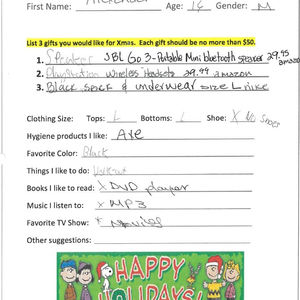 First Name: Alexander Age: 16 Gender: M
List 3 gifts you would like for Xmas. Each gift should be no more than $50.
1. Speaker JBL Go 3-Portable Mini bluetooth speaker 29.95 amazon
2. Playstation Wireless Headsets 29.99 amazon
3. Black socks & underwear size L nike
Clothing Size: Tops: L Bottoms: L Shoe: X No Shoes
Hygiene products I like: Axe
Favorite Color: Black
Things I like to do:
Books I like to read: X DVD player
Music I listen to: X MP3
Favorite TV Show: * Movies
Other suggestions:
HAPPY
HOLIDAYS!